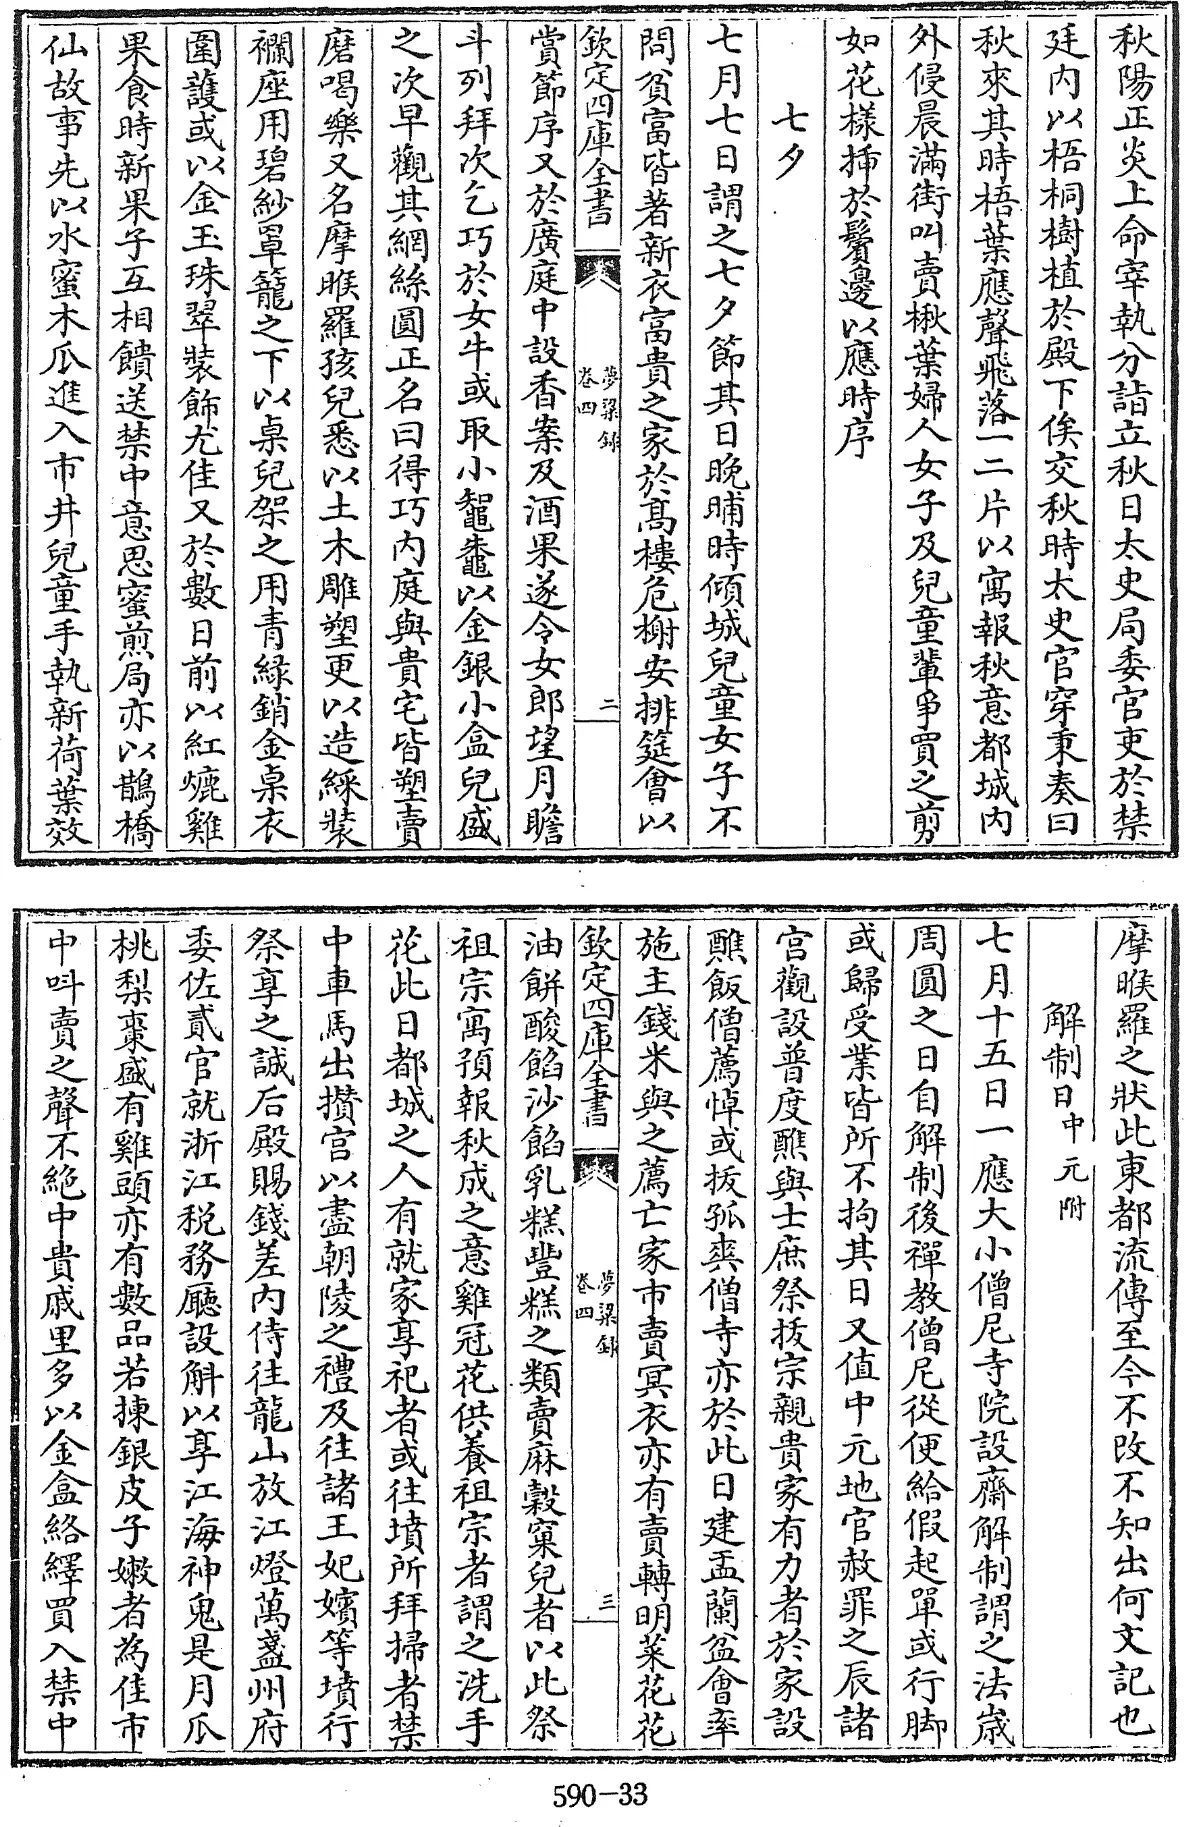 秋陽正炎上命宰執分詣立秋日太史局委官吏於禁
廷内以梧桐樹植於殿下俟交秋時太史官穿秉奏曰
秋來其時梧葉應聲飛落一二片以寓報秋意都城内
外侵晨滿街叫賣楸葉婦人女子及兒童輩爭買之剪
如花樣揷於鬢邊以應時序
七夕
七月七日謂之七夕節其日晚晡時傾城兒童女子不
問貧富皆著新衣富貴之家於髙樓危榭安排筵會以
欽定四庫全書
夢粱録
卷四
二
賞節序又於廣庭中設香案及酒果遂令女郎望月瞻
斗列拜次乞巧於女牛或取小鼅鼄以金銀小盒兒盛
之次早觀其網絲圓正名曰得巧内庭與貴宅皆塑賣
磨喝樂又名摩㬋羅孩兒悉以土木雕塑更以造綵裝
襴座用碧紗罩籠之下以桌兒架之用青緑銷金桌衣
圍護或以金玉珠翠裝飾尤佳又於數日前以紅熝雞
果食時新果子互相饋送禁中意思蜜煎局亦以鵲橋
仙故事先以水蜜木瓜進入市井兒童手執新荷葉效
摩㬋羅之狀此東都流傳至今不改不知出何文記也
解制日中元附
七月十五日一應大小僧尼寺院設齋解制謂之法嵗
周圓之日自解制後禪教僧尼從便給假起單或行脚
或歸受業皆所不拘其日又值中元地官赦罪之辰諸
宫觀設普度醮與士庶祭拔宗親貴家有力者於家設
醮飯僧薦悼或拔孤爽僧寺亦於此日建盂蘭盆會率
施主錢米與之薦亡家市賣冥衣亦有賣轉明菜花花
欽定四庫全書
夢粱録
卷四
三
油餅酸餡沙餡乳糕豐糕之類賣麻穀窠兒者以此祭
祖宗寓預報秋成之意雞冠花供養祖宗者謂之洗手
花此日都城之人有就家享祀者或往墳所拜掃者禁
中車馬出攢宫以盡朝陵之禮及往諸王妃嬪等墳行
祭享之誠后殿賜錢差内侍往龍山放江燈萬盞州府
委佐貳官就浙江税務廳設斛以享江海神鬼是月瓜
桃梨棗盛有雞頭亦有數品若揀銀皮子嫩者為佳市
中呌賣之聲不絶中貴戚里多以金盒絡繹買入禁中
590-33